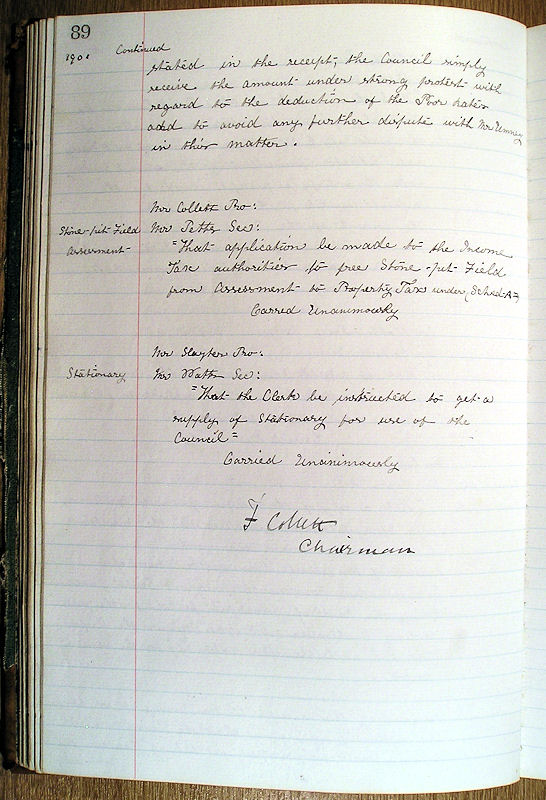 89
1901 Continued
stated in the receipt, the Council simply
receive the amount under strong protest with
regard to the deduction of the Poor Rates
and to avoid any further dispute with Mr Umney
in this matter.
Mr Collett Pro:
Stone-pit-Field Mr Petts Sec:
Assessment- "That application be made to the Income
Tax authorities to free Stone-pit Field
from Assessment to Property Tax under (Sched-A="
Carred Unanimously
Mr Slayter Pro:
Stationary Mr Watts Sec:
"That the Clerk be instructed to get a
supply of Stationary for use of the
Council"
Carried Unanimously
F Collett
Chairman